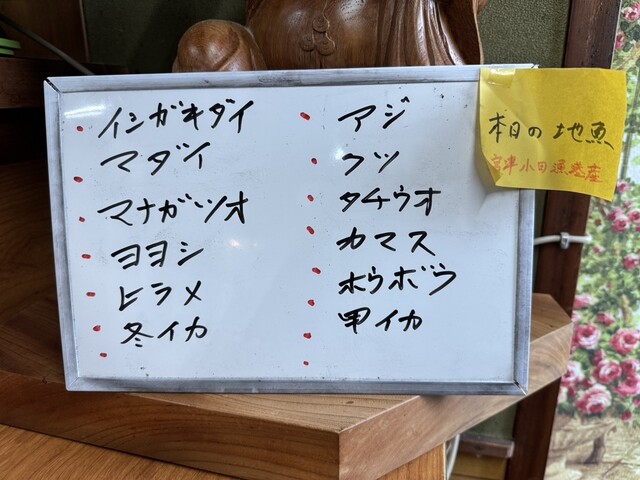 イシガキダイ
マダイ
マナガツオ
ヨヨシ
ヒラメ
冬イカ
アジ
クツ
タチウオ
カマス
ホウボウ
甲イカ
本日の地魚
宮津小田漁港産